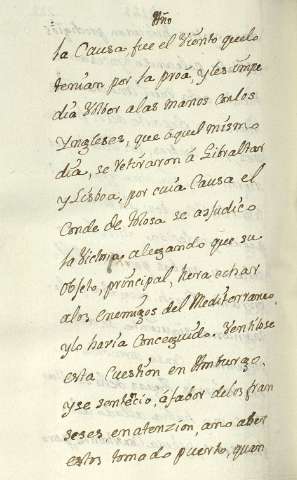 Año
la Causa, fue el Viento quelo
tenian por la proa, y les impe
dia Volber a las manos conlos
Yngleses, que aquel mismo
dia, se retiraron á Gibraltar
y Lisboa, por cuia Causa el
Conde de tolosa se adjudico
la Victoria alegando que su
objeto, principal, hera echar
alos enemigos del Mediterraneo
ylo havia conceguido. Ventilose
esta Cuestion en Amburgo.
y se sentecio, áfabor delos fran
seses en atenzion, a no aber
estos tomado puerto, quan